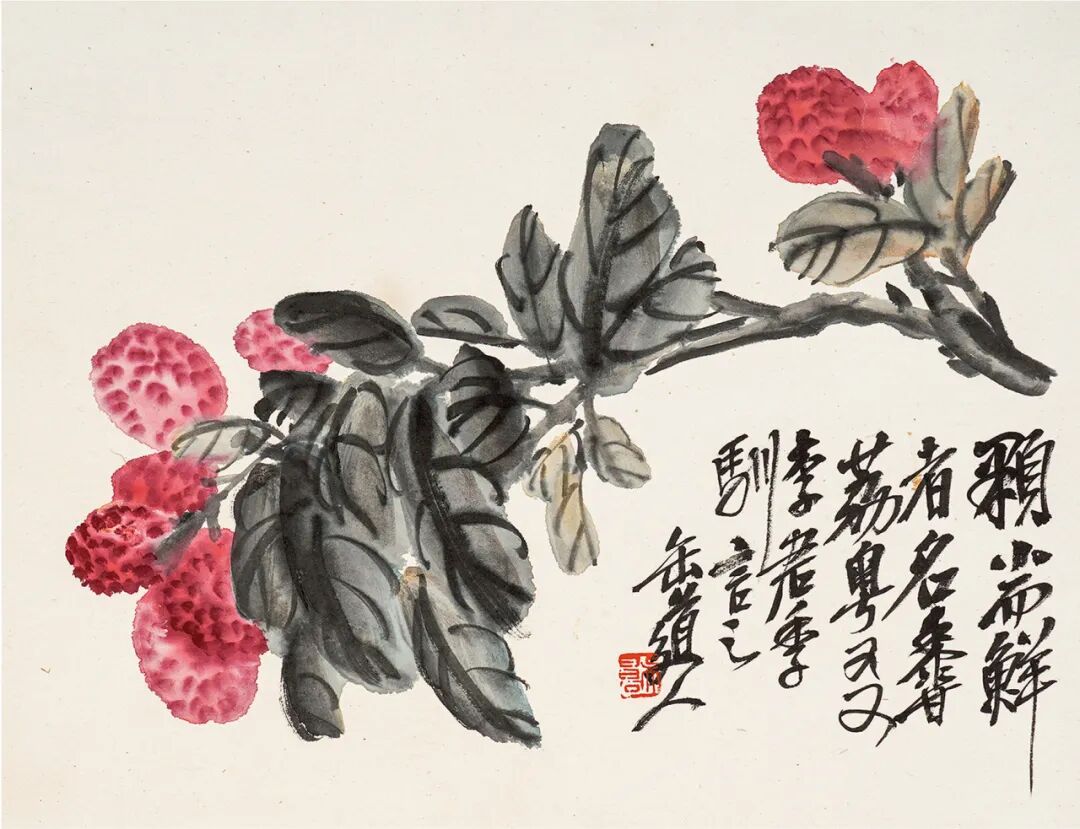 顆小而鮮
者名香
荔粤友
李君季
馴言之
缶道人